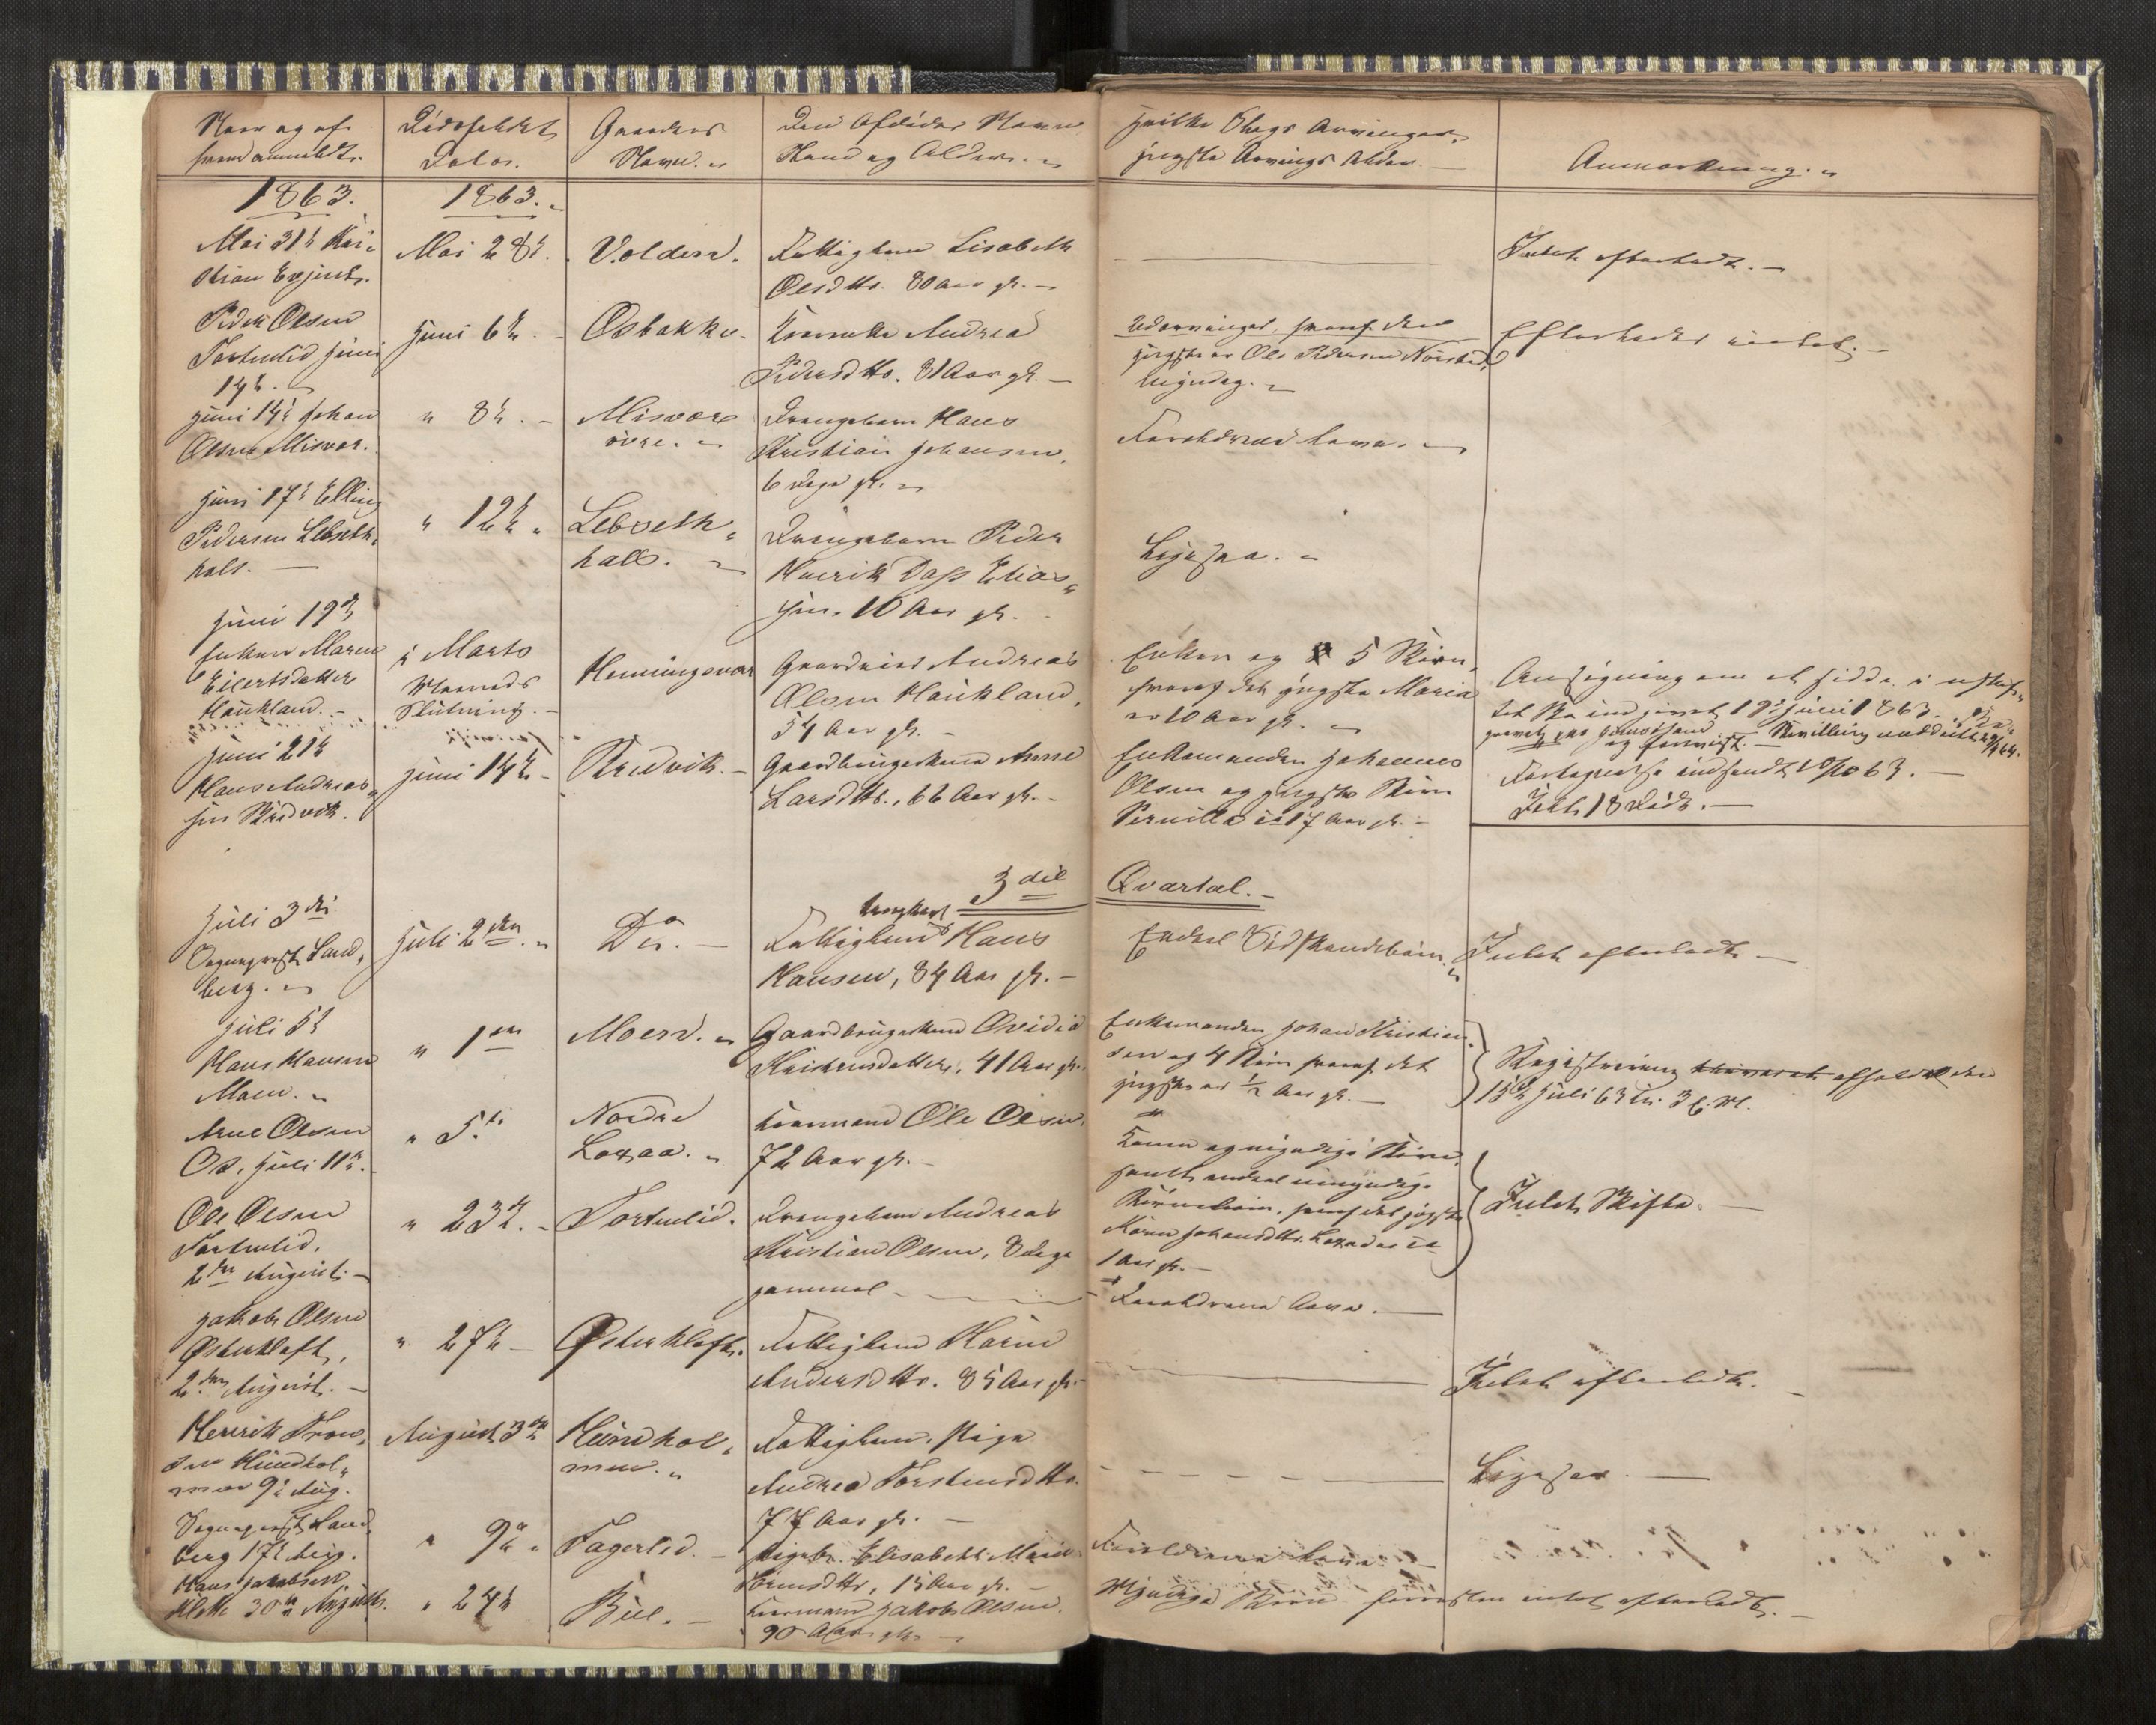 Naar og af
hvem anmeldt.
Dødsfaldets
Dato.
Gaardens
Navn.
Den Afdødes Navn
Stand og Alder.
hvilke Slags Arvinger,
yngste Arvings Alder.
Anmærkning.
1863.
1863.
Mai 31te Kri-
stian Evjenth.
Mai 28de.
Volden.
Fattiglem Lisabeth
Olsdtr. 80 Aar gl.
Intet efterladt.
Peder Olsen
Tortenlid Juni
14de.
Juni 6te.
Osbakke.
Kaarenke Andrea
Pedersdtr. 81 Aar gl.
Udarvinger, hvoraf den
yngste er Ole Pedersen
myndig.
Efterlader intet.
Juni 14de Johan
Olsen Misvær.
" 8de.
Misvær
øvre.
Drengebarn Hans
Kristian Johansen,
6 Dage gl.
Forældrene leve.
Juni 17de Elling
Pedersen Lebseth-
hals.
" 12te
Lebseth-
hals.
Drengebarn Peder
Henrik Dass Elias-
sen. 10 Aar gl.
Ligesaa.
Juni 19de
Enken Maren
Eilertsdatter
Haukland.
i Marts
Maaneds
Slutning.
Henningsvær
Gaardmand Andreas
Olsen Haukland,
54 Aar gl.
Enken og 5 Børn,
hvoraf det yngste Maria
er 10 Aar gl.
Ansøgning om at sidde i uskif-
tet Bo indgivet 19de Juni 1863.
Bevilling meddeelt
Juni 21de
Hans Andreas-
sen Skredvik.
Juni 14de
Skredvik.
Gaardbrugerkone Anne
Larsdtr., 66 Aar gl.
Enkemanden Johannes
Olsen og yngste Børn
Pernille ca 17 Aar gl.
indsendt 10/10 63.
3die Qvartal.
Juli 3die
Sogneprest Sand-
berg.
Juli 2den.
Do.
Fattiglem Hans
Hansen, 84 Aar gl.
Endeel Sødskendebørn.
Intet efterladt.
Juli 5te
Hans Hansen
Moen.
" 1ste
Moen.
Gaardbrugerkone Ovidia
Kristensdatter, 41 Aar gl.
Enkemanden Johan Kristian-
sen og 4 Børn hvoraf det
yngste er 1/2 Aar gl.
Registrering afholdt den
15de Juli 63 Kl.
Arne Olsen
Os, Juli 11te.
" 5te
Nordre
Løxaa.
Kaarmand Ole Olsen,
72 Aar gl.
Konen og myndige Børn,
samt endeel umyndige
Børnebørn, hvoraf det yngste
Karen Johansdtr. ca
1 Aar gl.
Intet Skifte.
Ole Olsen
Tortenlid.
2den August.
" 23de.
Tortenlid.
Drengebarn Andreas
Kristian Olsen, 8 Dage
gammel
Forældrene leve.
Jakob Olsen
Østerkløft,
2den August.
" 27de
Østerkløft.
Fattiglem Karen
Andersdtr. 85 Aar gl.
Intet efterladt.
Henrik Tron-
sen Hundhol-
men 9de Aug.
August 3die
Hundhol-
men.
Fattiglem, Pige
Andrea Torstensdtr.
77 Aar gl.
Ligesaa.
Sogneprest Sand-
berg 17de Aug.
" 9de
Fagerlid.
Pigeb. Elisabeth Marie
15 Aar gl.
Forældrene leve.
Hans Jakobsen
30te August.
" 24de
Bue.
Kaarmand Jakob Olsen,
90 Aar gl.
Myndige Børn. forresten intet efterladt.